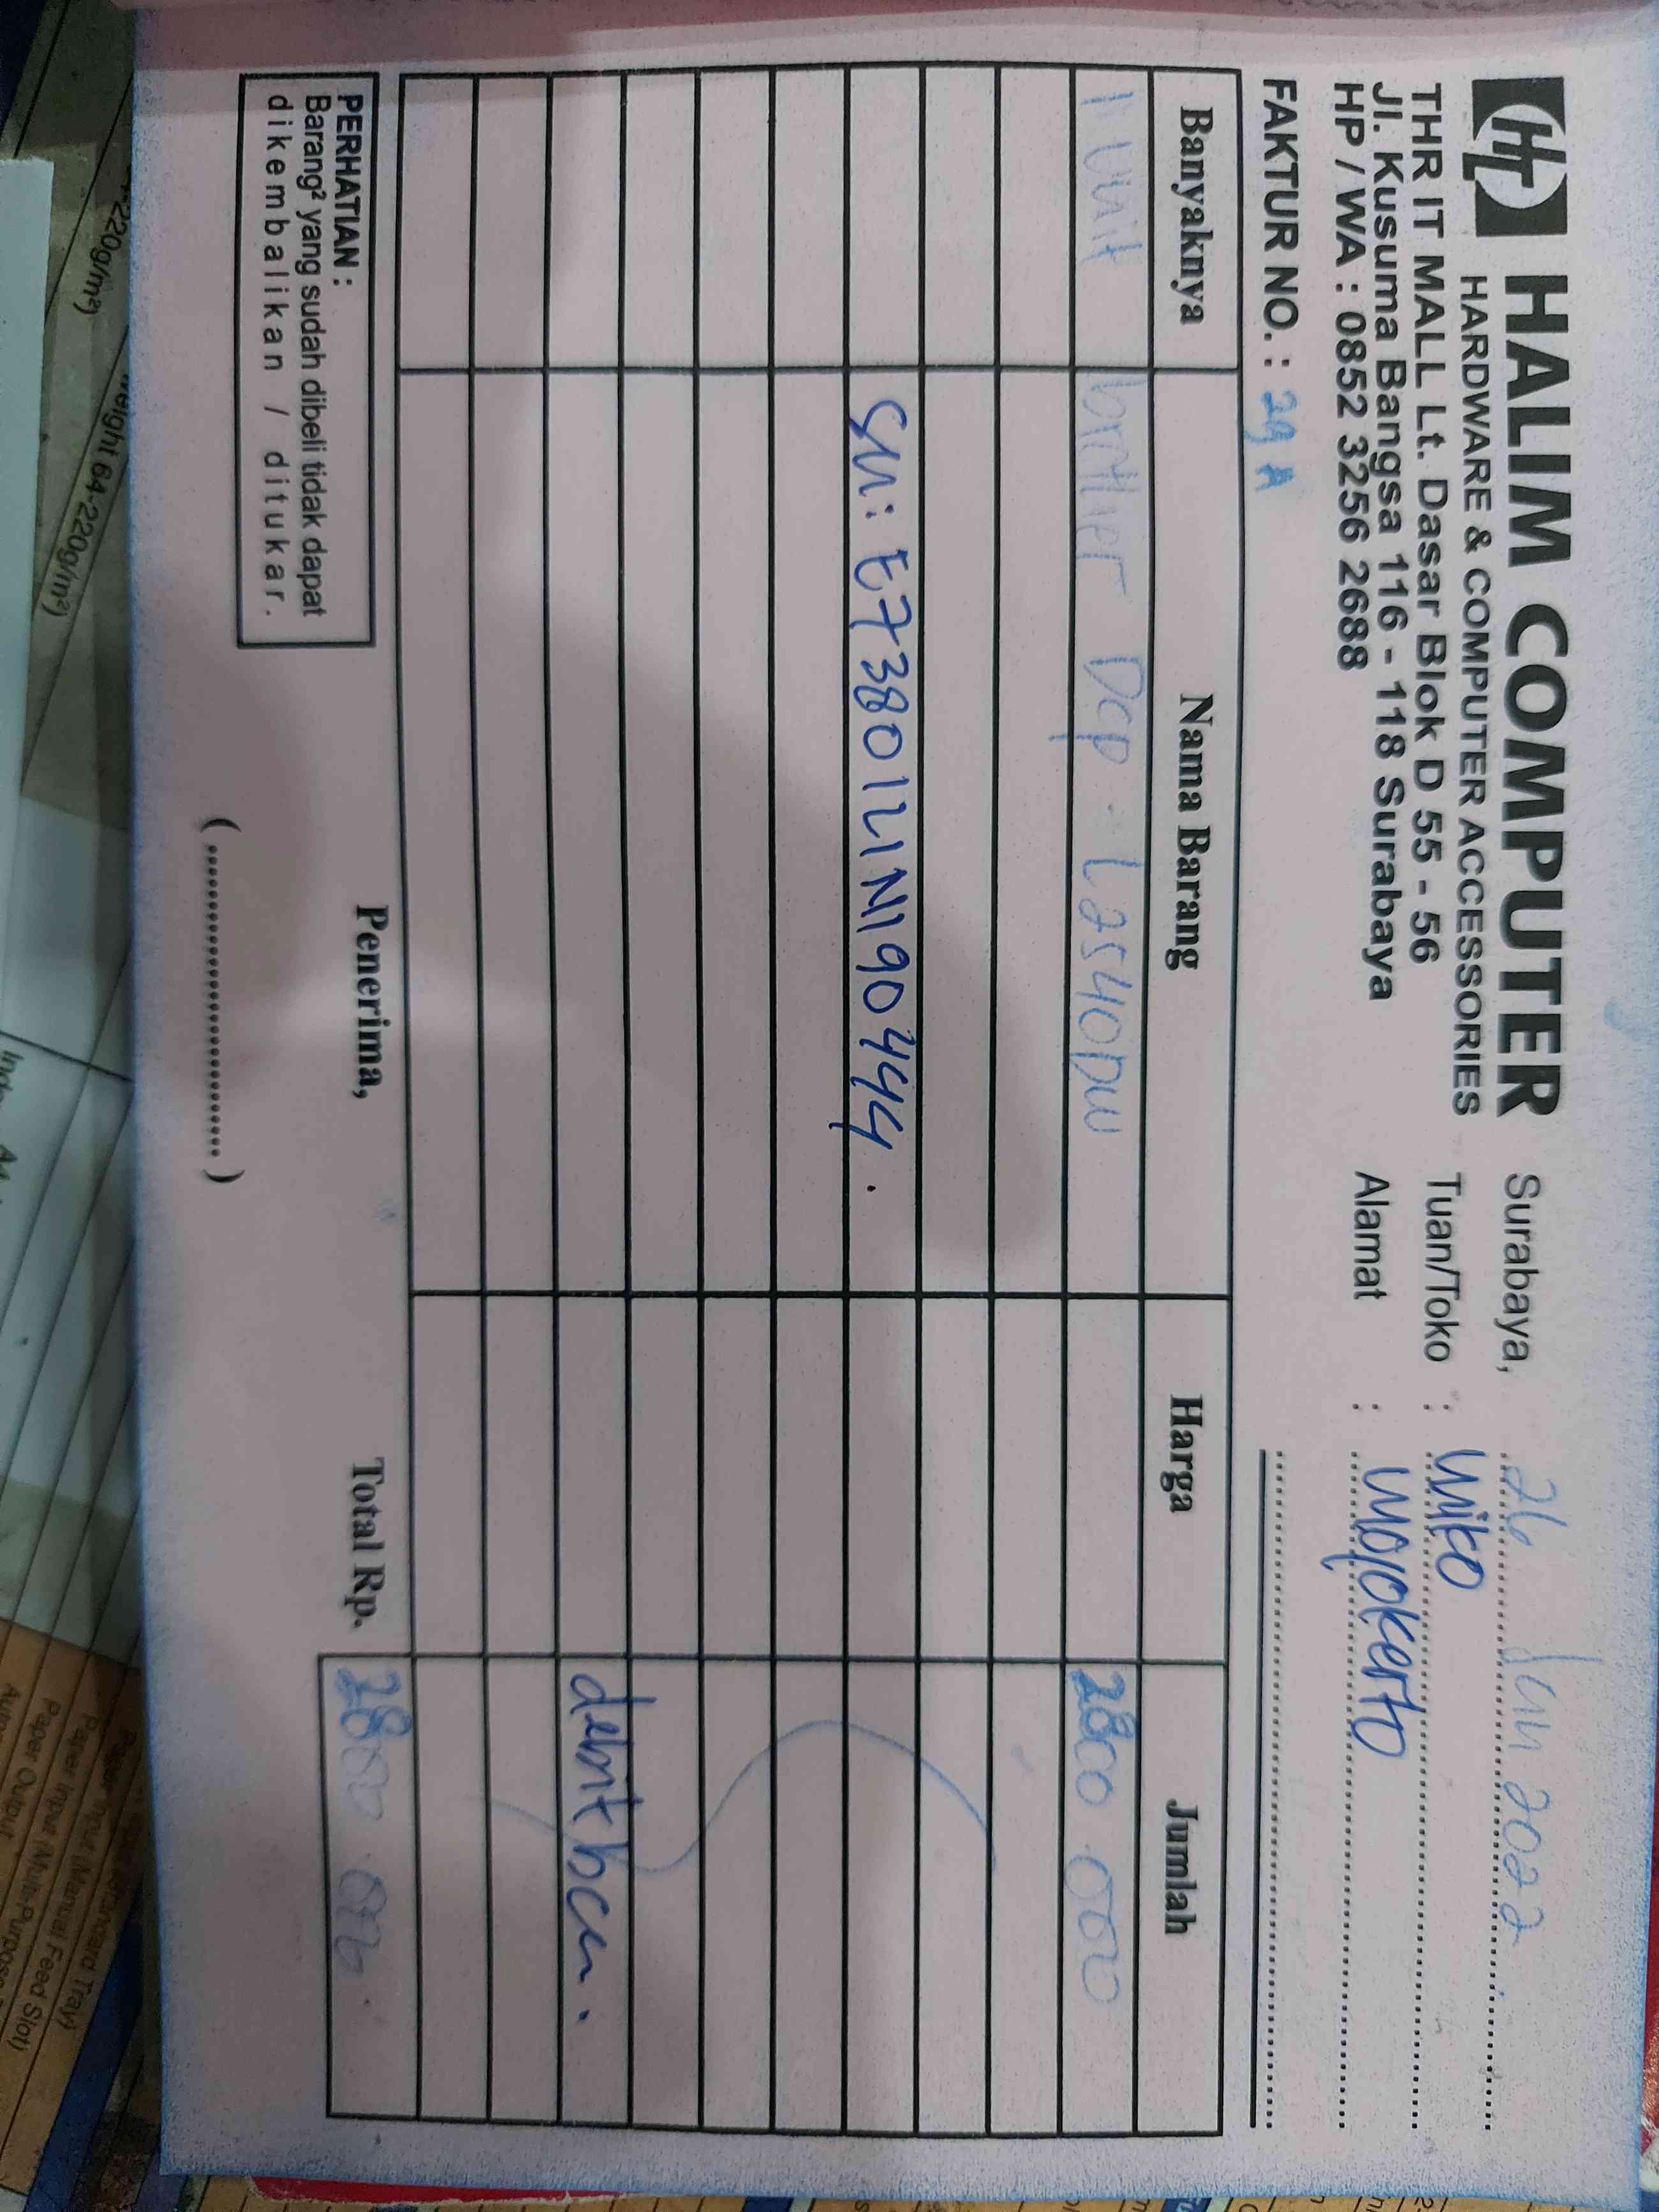 HALIM COMPUTER
HARDWARE & COMPUTER ACCESSORIES
THR IT MALL Lt. Dasar Blok D 55 - 56
Jl. Kusuma Bangsa 116 - 118 Surabaya
HP / WA : 0852 3256 2688
Surabaya, 26 Jun 2022
Tuan/Toko : Miko
Alamat : Mojokerto
FAKTUR NO. : 29 A
Banyaknya Nama Barang Harga Jumlah
1 Unit brother Dcp - L2540DW 2800 000
SN: E73801L1N190444.
debit bca.
Total Rp. 2800 000
PERHATIAN :
Barang² yang sudah dibeli tidak dapat
dikembalikan / ditukar.
Penerima,
(..............................)
220g/m²)
eight 64-220g/m²)
Tray)
Paper Input (Manual Feed Slot)
Paper Output